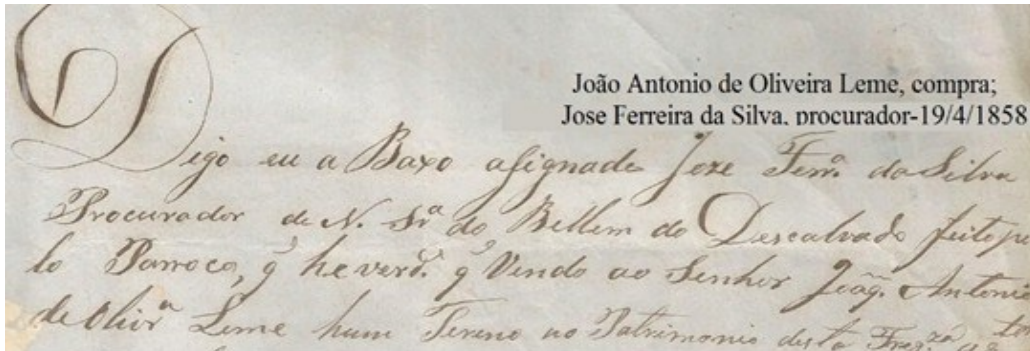 João Antonio de Oliveira Leme, compra;
Jose Ferreira da Silva, procurador-19/4/1858
Digo eu a Baxo asignado Joze Ferr.ª da Silva
Procurador de N. Srª do Bellem do Descalvado feito pe
lo Parroco, q̃ he verd.e q̃ Vendo ao Senhor Joaõ Antonio
de Olivrª Leme hum Tereno no Patrimonio desta Freg.za